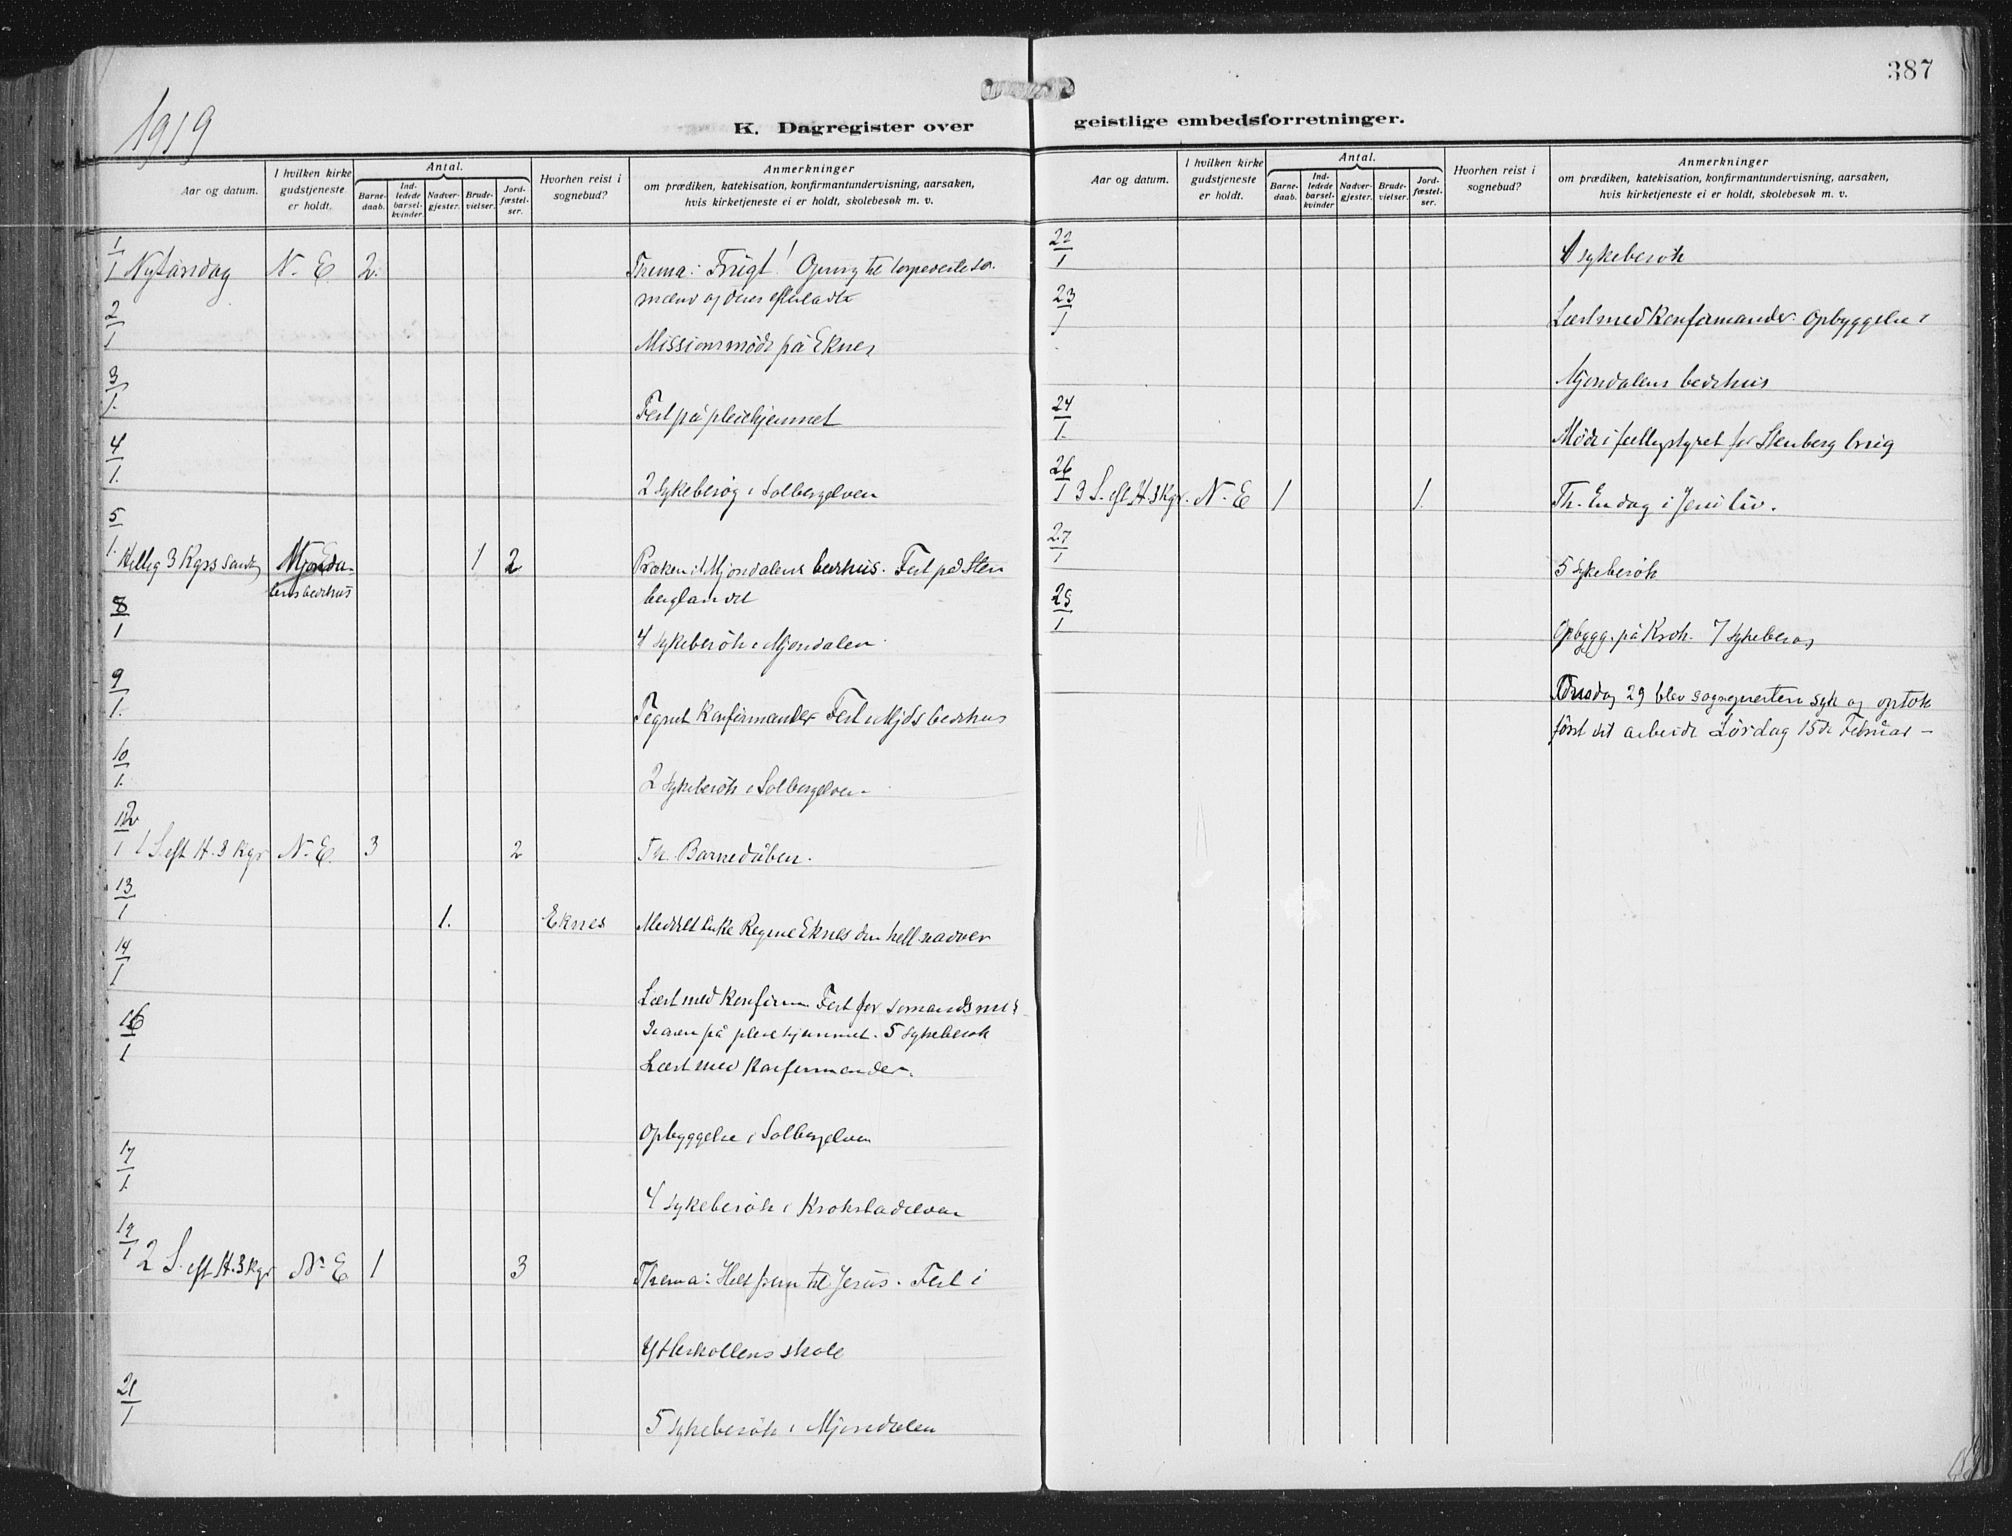 387
1919
K. Dagregister over geistlige embedsforretninger.
Aar og datum.
I hvilken kirke gudstjeneste er holdt.
Antal.
Barnedaab.
Indledede barselkvinder.
Nadvergjester.
Brudevielser.
Jordfæstelser.
Hvorhen reist i sognebud?
Anmerkninger
om prædiken, katekisation, konfirmantundervisning, aarsaken,
hvis kirketjeneste ei er holdt, skolebesøk m. v.
1/1 Nytårsdag N. E. 2. Thema: Frygt! Ofring til torpederte sø-
mænd og deres efterladte
2/1 Missionsmöde på Eknes
3/1. Fest på pleiehjemmet
4/1. 2 sykebesög i Solbergelven
5/1. Hellig 3 Kgrs Mjonda- 1 2 Præken i Mjondalens bedehus. Fest på Sten
lens bedehus berglandet
8/1 4 sykebesök i Mjondalen.
9/1. Tegnet konfirmander Fest i Mjds bedehus
10/1. 2 sykebesök i Solbergelven.
12/1 1 S. eft H. 3 Kgr N. E. 3 2 Th. Barnedåben.
13/1 1. Eknes Meddelt Enke Regine Eknes den hell nadver
14/1 Læst med konfirm. Fest for sömandsmis
sionen på pleiehjemmet. 5 sykebesök
16/1 Læst med konfirmander.
Opbyggelse i Solbergelven
17/1. 4 sykebesök i Krokstadelven
19/1 2 S. eft H. 3 Kgr N. E 1 3 Thema: Helt frem til Jesus. Fest i
Ytterkollens skole
21/1 5 sykebesök i Mjondalen
Aar og datum.
I hvilken kirke gudstjeneste er holdt.
Antal.
Barnedaab.
Indledede barselkvinder.
Nadvergjester.
Brudevielser.
Jordfæstelser.
Hvorhen reist i sognebud?
Anmerkninger
om prædiken, katekisation, konfirmantundervisning, aarsaken,
hvis kirketjeneste ei er holdt, skolebesøk m. v.
22/1 4 sykebesök
23/1 Læst med konfirmander. Opbyggelse i
Mjondalens bedehus
24/1. Möde i for Stenberg brug
26/1 3 S. eft H. 3 Kgr. N. E 1 1. Th. En dag i Jesu liv.
27/1 5 sykebesök
28/1 Opbygg. på Krok. 7 sykebesøg
Onsdag 29 blev sognepresten syk og optok
först sit arbeide Lördag 15de Februar –